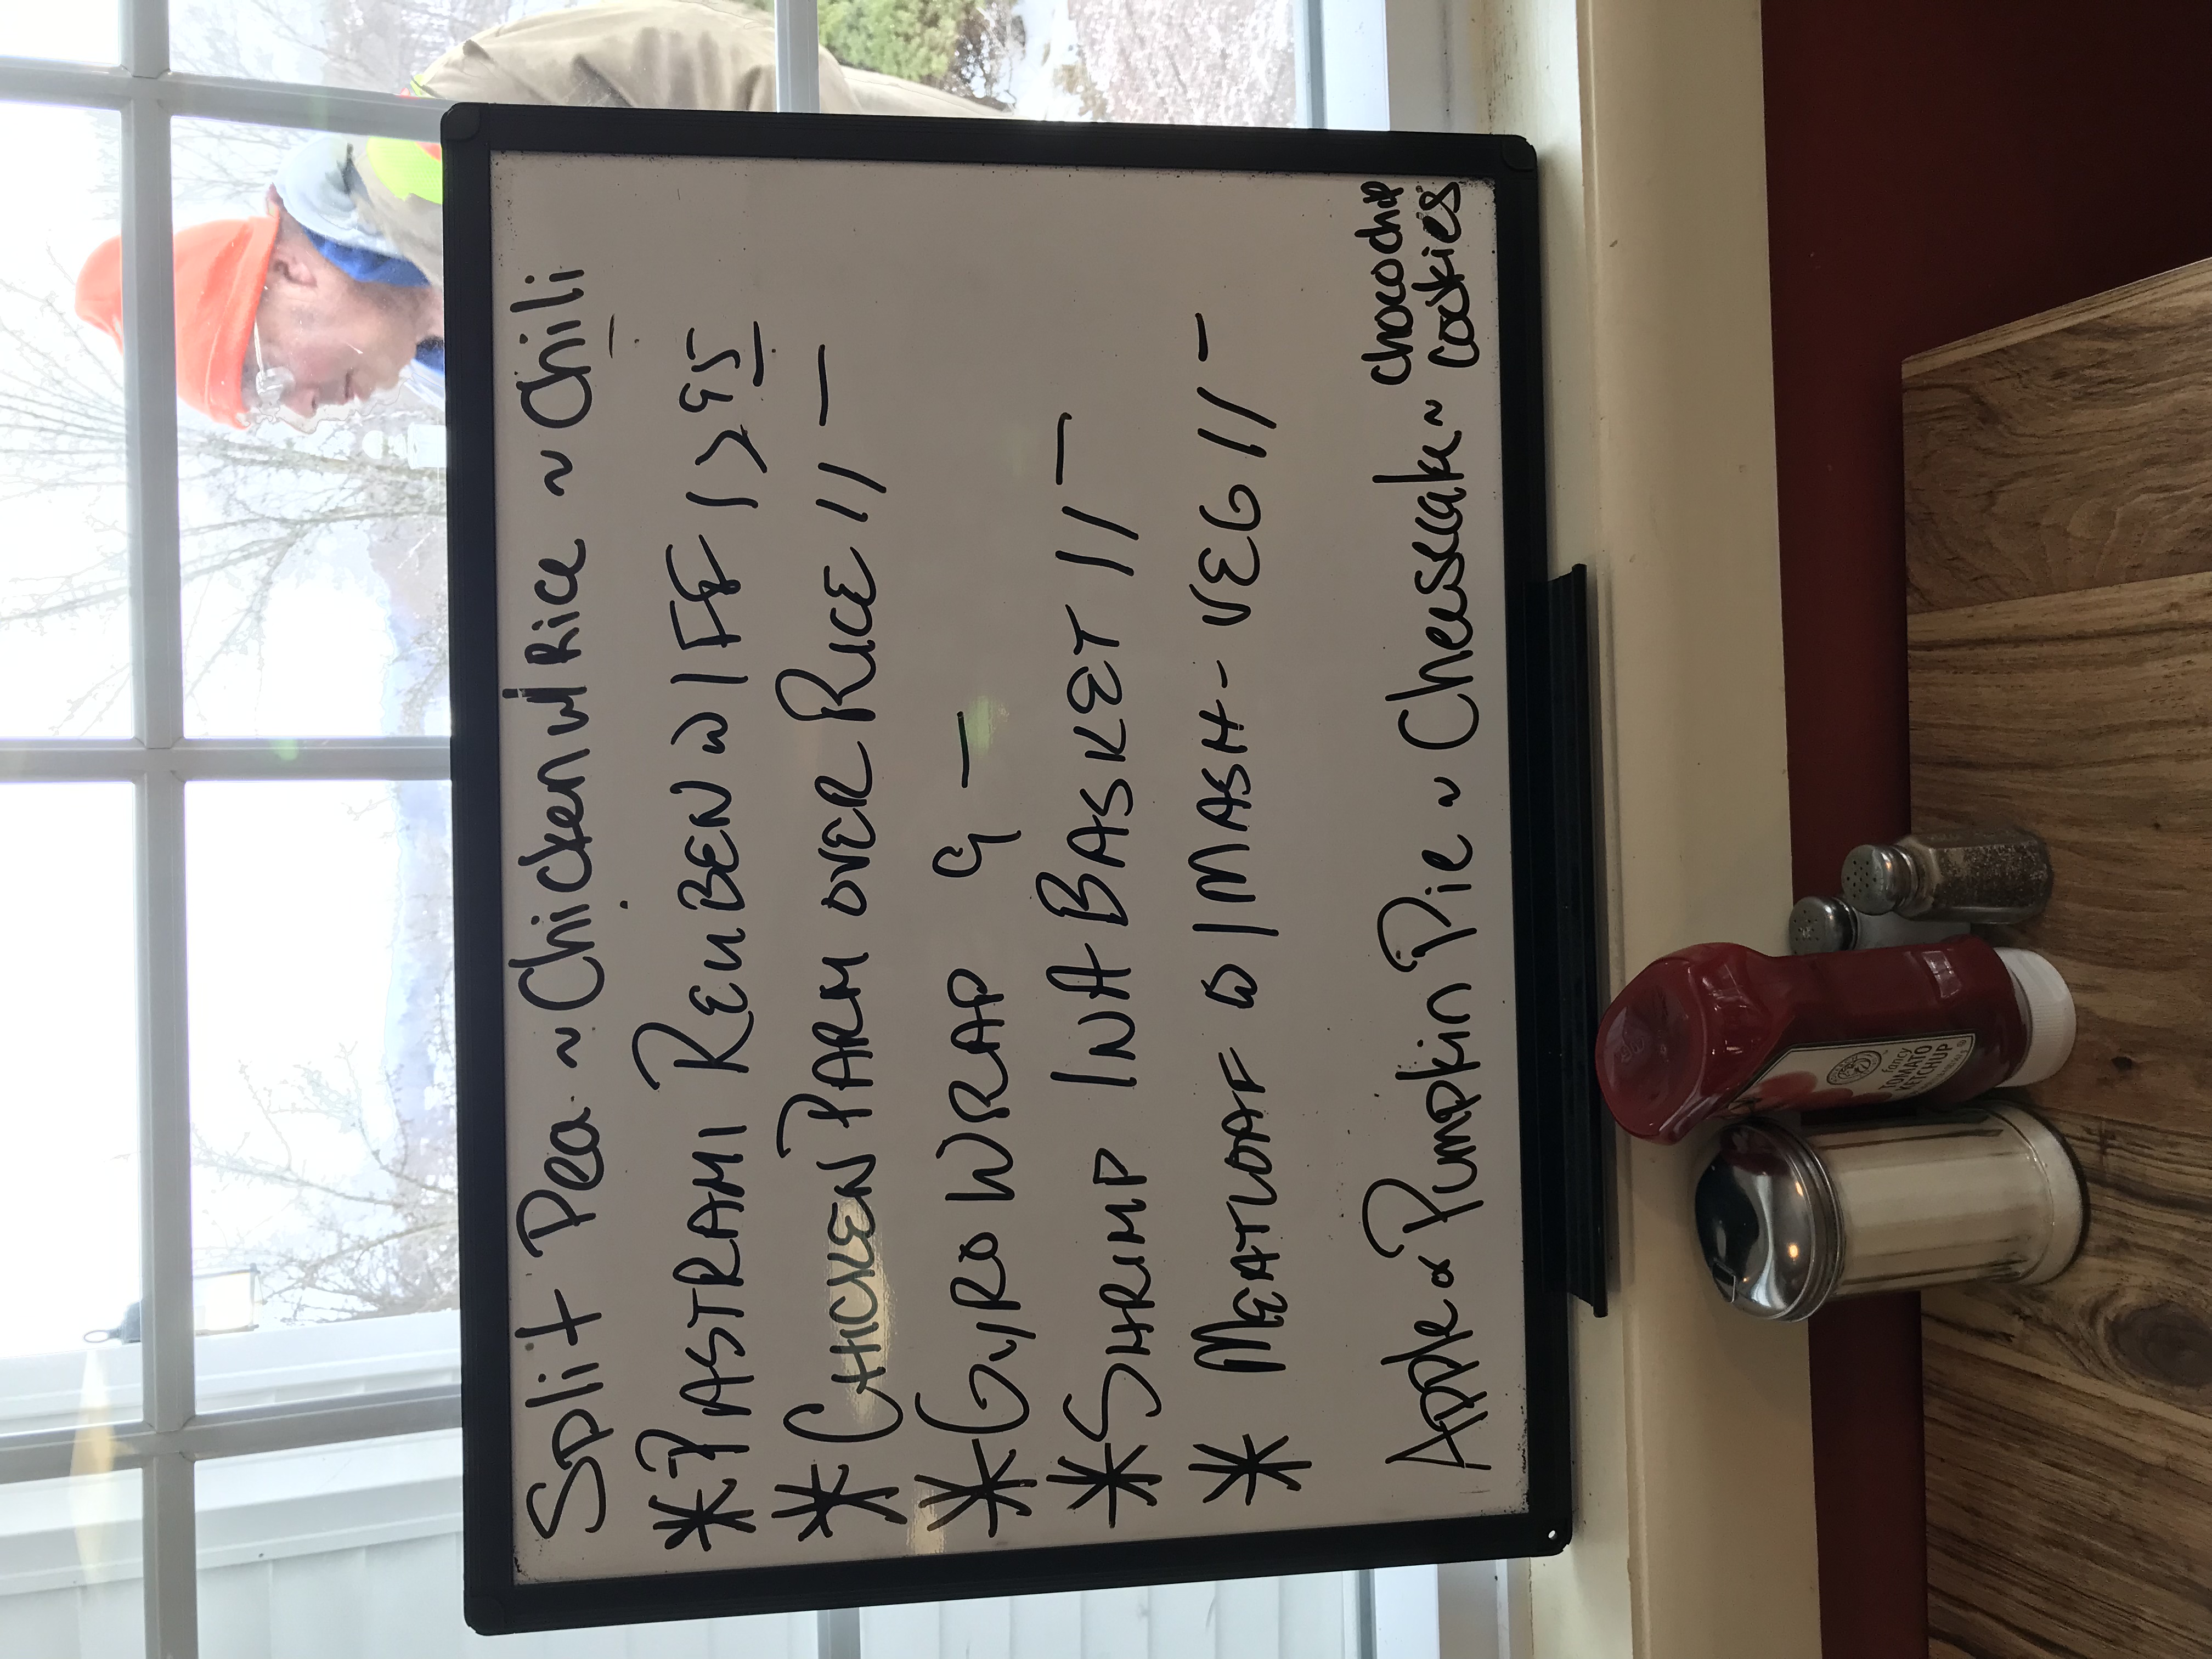 Split Pea ~ Chicken w/ Rice ~ Chili
* PASTRAMI REUBEN W/ FF 12 95
* CHICKEN PARM OVER RICE 11 —
* GYRO WRAP 9 —
* SHRIMP IN A BASKET 11 —
* MEATLOAF W/ MASH - VEG 11 —
Apple & Pumpkin Pie ~ Cheesecake ~ Choco chip
cookies
fancy
TOMATO
KETCHUP